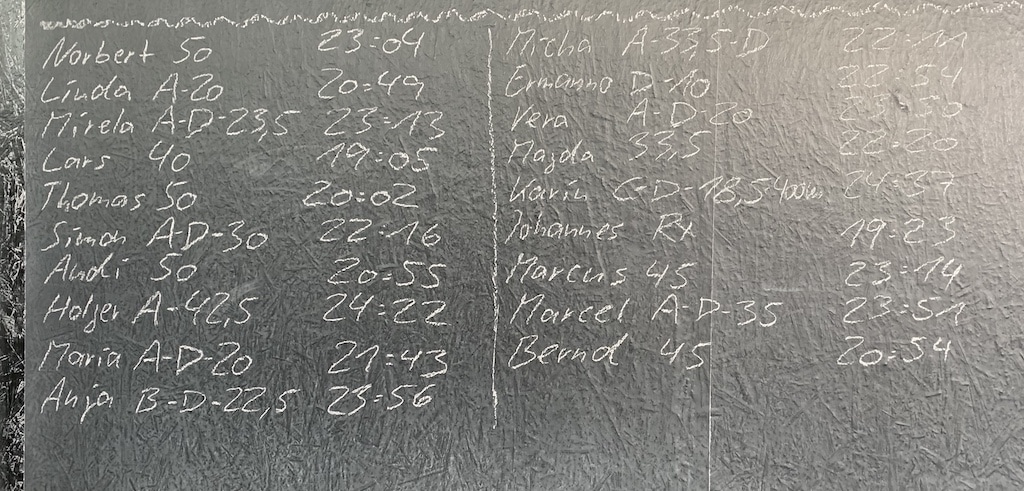 Norbert 50 23:04
Linda A-20 20:49
Mirela A-D-23,5 23:13
Lars 40 19:05
Thomas 50 20:02
Simon A-D-30 22:16
Andi 50 20:55
Holger A-42,5 24:22
Maria A-D-20 21:43
Anja B-D-22,5 23:56
Micha A-33,5-D 22:11
Ermanno D-40 22:54
Vera A-D-20 23:50
Magda 33,5 22:20
Karin C-D-18,5-400m 24:37
Johannes Rx 19:23
Marcus 45 23:14
Marcel A-D-35 23:51
Bernd 45 20:54